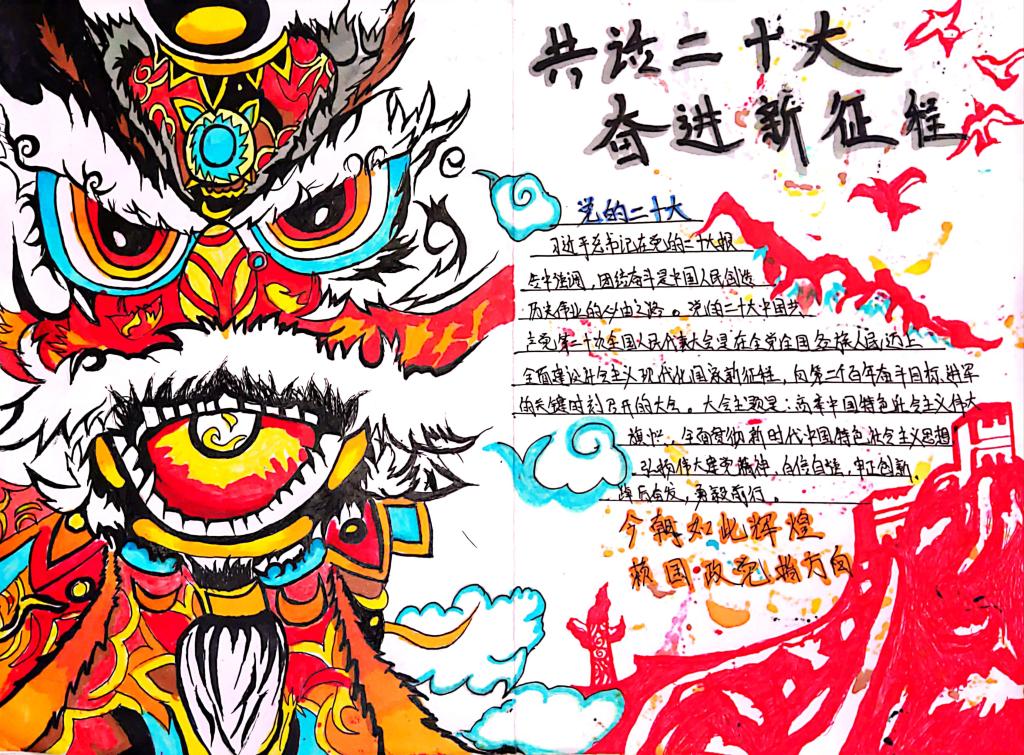 共话二十大
奋进新征程
党的二十大
习近平总书记在党的二十大报
告中强调，团结奋斗是中国人民创造
历史伟业的必由之路。党的二十大中国共
产党第二十次全国人民代表大会是在全党全国各族人民迈上
全面建设社会主义现代化国家新征程，向第二个百年奋斗目标进军
的关键时刻召开的大会。大会主题是：高举中国特色社会主义伟大
旗帜，全面贯彻新时代中国特色社会主义思想
弘扬伟大建党精神，自信自强，守正创新，
踔厉奋发，勇毅前行。
今朝如此辉煌
赖国政党指方向